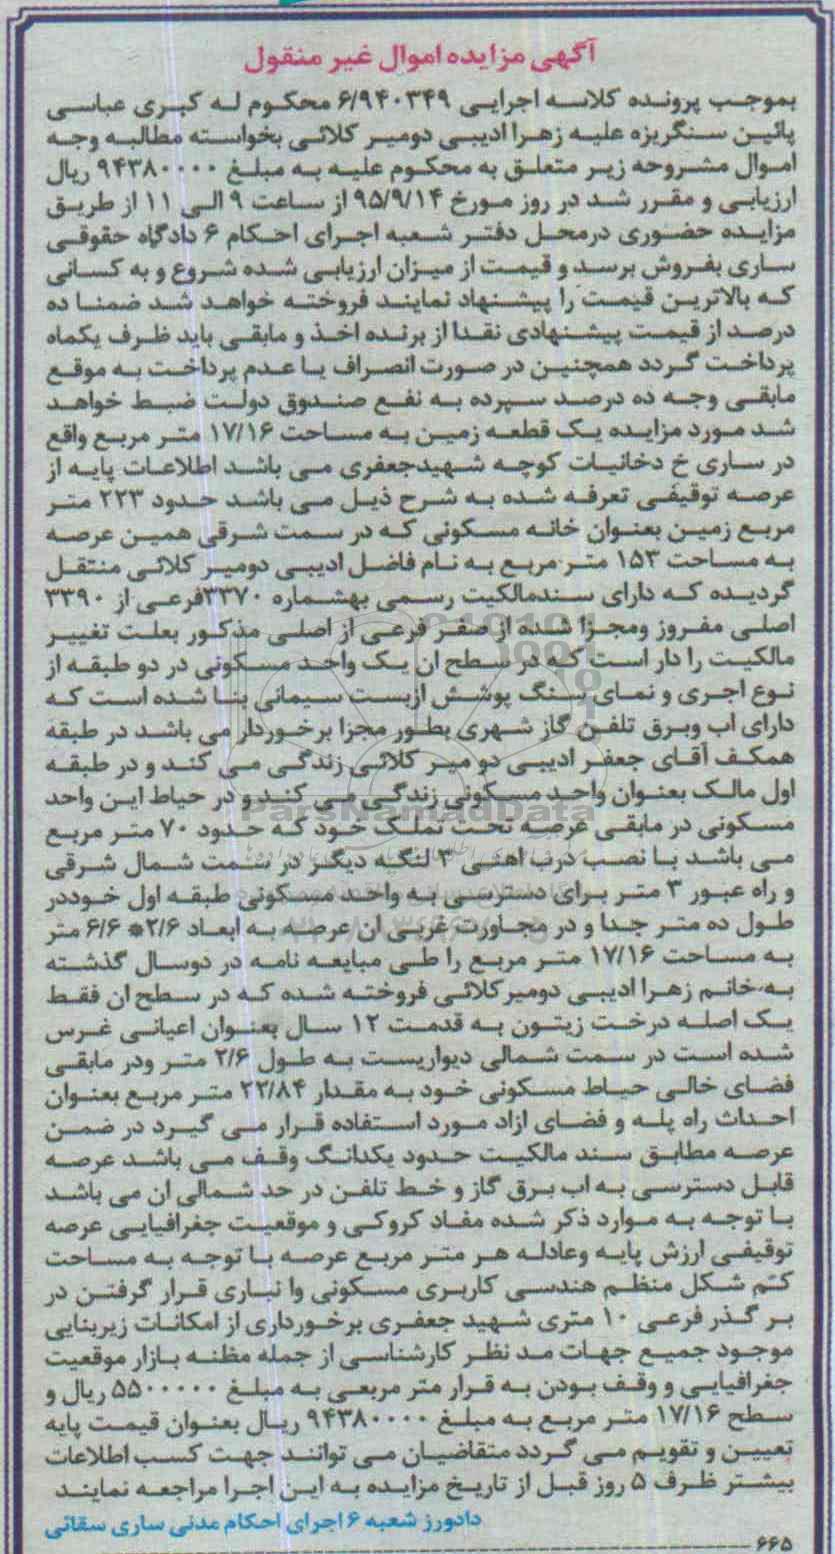 آگهی مزایده اموال غیر منقول
بموجب پرونده کلاسه اجرایی ۶/۹۴۰۳۴۹ محکوم له کبری عباسی
پائین سنگریزه علیه زهرا ادیبی دومیر کلائی بخواسته مطالبه وجه
اموال مشروحه زیر متعلق به محکوم علیه به مبلغ ۹۴۳۸۰۰۰۰ ریال
ارزیابی و مقرر شد در روز مورخ ۹۵/۹/۱۴ از ساعت ۹ الی ۱۱ از طریق
مزایده حضوری درمحل دفتر شعبه اجرای احکام ۶ دادگاه حقوقی
ساری بفروش برسد و قیمت از میزان ارزیابی شده شروع و به کسانی
که بالاترین قیمت را پیشنهاد نمایند فروخته خواهد شد ضمنا ده
درصد از قیمت پیشنهادی نقدا از برنده اخذ و مابقی باید ظرف یکماه
پرداخت گردد همچنین در صورت انصراف یا عدم پرداخت به موقع
مابقی وجه ده درصد سپرده به نفع صندوق دولت ضبط خواهد
شد مورد مزایده یک قطعه زمین به مساحت ۱۷/۱۶ متر مربع واقع
در ساری خ دخانیات کوچه شهیدجعفری می باشد اطلاعات پایه از
عرصه توقیفی تعرفه شده به شرح ذیل می باشد حدود ۲۲۳ متر
مربع زمین بعنوان خانه مسکونی که در سمت شرقی همین عرصه
به مساحت ۱۵۳ متر مربع به نام فاضل ادیبی دومیر کلائی منتقل
گردیده که دارای سندمالکیت رسمی بهشماره ۳۳۷۰فرعی از ۳۳۹۰
اصلی مفروز ومجزا شده از صفر فرعی از اصلی مذکور بعلت تغییر
مالکیت را دار است که در سطح ان یک واحد مسکونی در دو طبقه از
نوع اجری و نمای سنگ پوشش ازبست سیمانی بنا شده است که
دارای اب وبرق تلفن گاز شهری بطور مجزا برخوردار می باشد در طبقه
همکف آقای جعفر ادیبی دو میر کلائی زندگی می کند و در طبقه
اول مالک بعنوان واحد مسکونی زندگی می کند و در حیاط این واحد
مسکونی در مابقی عرصه تحت تملک خود که حدود ۷۰ متر مربع
می باشد با نصب درب اهنی ۳ لنگه دیگر در سمت شمال شرقی
و راه عبور ۳ متر برای دسترسی به واحد مسکونی طبقه اول خوددر
طول ده متر جدا و در مجاورت غربی ان عرصه به ابعاد ۲/۶* ۶/۶ متر
به مساحت ۱۷/۱۶ متر مربع را طی مبایعه نامه در دوسال گذشته
به خانم زهرا ادیبی دومیرکلائی فروخته شده که در سطح ان فقط
یک اصله درخت زیتون به قدمت ۱۲ سال بعنوان اعیانی غرس
شده است در سمت شمالی دیواریست به طول ۲/۶ متر ودر مابقی
فضای خالی حیاط مسکونی خود به مقدار ۲۲/۸۴ متر مربع بعنوان
احداث راه پله و فضای ازاد مورد استفاده قرار می گیرد در ضمن
عرصه مطابق سند مالکیت حدود یکدانگ وقف می باشد عرصه
قابل دسترسی به اب برق گاز و خط تلفن در حد شمالی ان می باشد
با توجه به موارد ذکر شده مفاد کروکی و موقعیت جغرافیایی عرصه
توقیفی ارزش پایه وعادله هر متر مربع عرصه با توجه به مساحت
کم شکل منظم هندسی کاربری مسکونی وا نباری قرار گرفتن در
بر گذر فرعی ۱۰ متری شهید جعفری برخورداری از امکانات زیربنایی
موجود جمیع جهات مد نظر کارشناسی از جمله مظنه بازار موقعیت
جغرافیایی و وقف بودن به قرار متر مربعی به مبلغ ۵۵۰۰۰۰۰ ریال و
سطح ۱۷/۱۶ متر مربع به مبلغ ۹۴۳۸۰۰۰۰ ریال بعنوان قیمت پایه
تعیین و تقویم می گردد متقاضیان می توانند جهت کسب اطلاعات
بیشتر ظرف ۵ روز قبل از تاریخ مزایده به این اجرا مراجعه نمایند
دادورز شعبه ۶ اجرای احکام مدنی ساری سقائی
۶۶۵
ParsNamadData